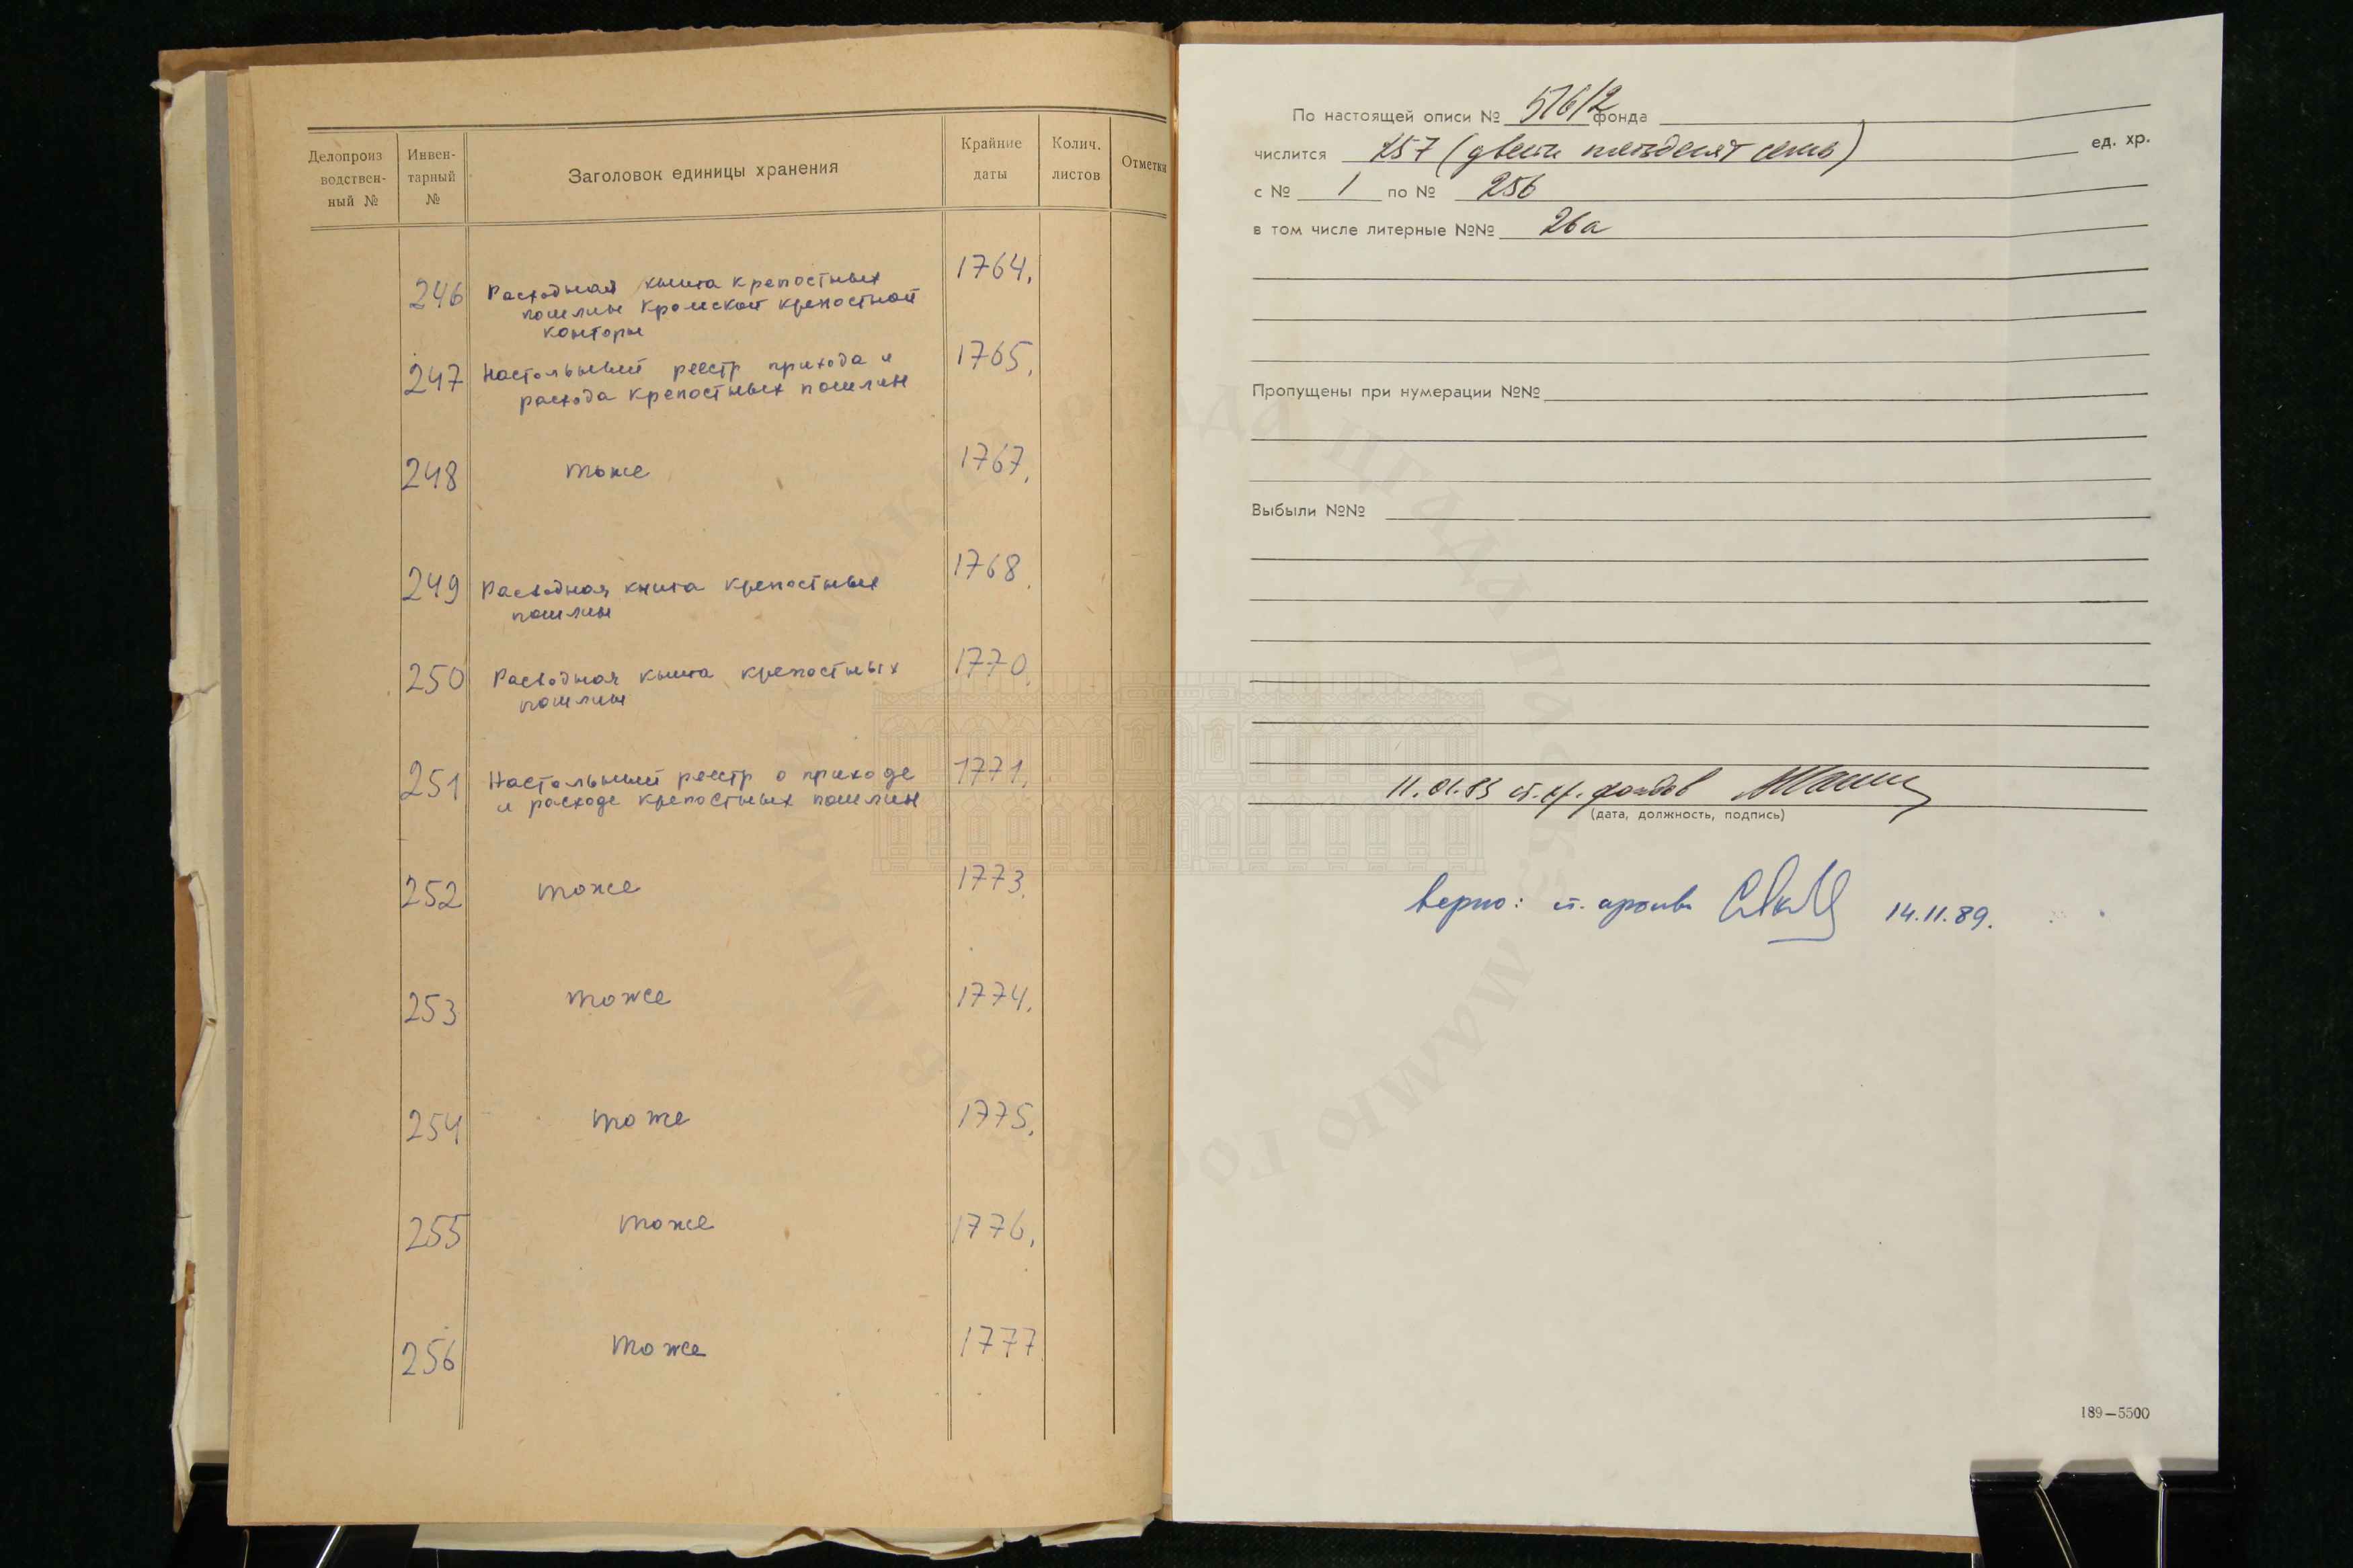 Делопроиз
водствен-
ный №
Инвен-
тарный
№
Заголовок единицы хранения
Крайние
даты
Колич.
листов
Отметки
246 Расходная книга крепостных 1764.
пошлин Кромской крепостной
конторы
247 Настольный реестр прихода и 1765.
расхода крепостных пошлин
248 тоже 1767.
249 Расходная книга крепостных 1768.
пошлин
250 Расходная книга крепостных 1770.
пошлин
251 Настольный реестр о приходе 1771.
и расходе крепостных пошлин
252 тоже 1773.
253 тоже 1774.
254 тоже 1775.
255 тоже 1776.
256 тоже 1777
По настоящей описи № 576/2 фонда
числится 257 (двести пятьдесят семь) ед. хр.
с № 1 по № 256
в том числе литерные №№ 26а
Пропущены при нумерации №№
Выбыли №№
11.01.83 ст. хр. фондов
(дата, должность, подпись)
верно: ст. архив 14.11.89.
189—5500